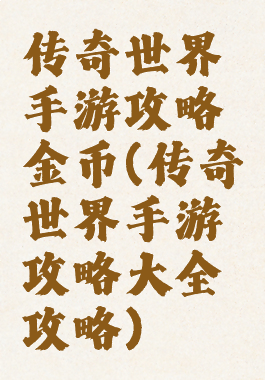 传奇世界
手游攻略
金币(传奇
世界手游
攻略大全
攻略)